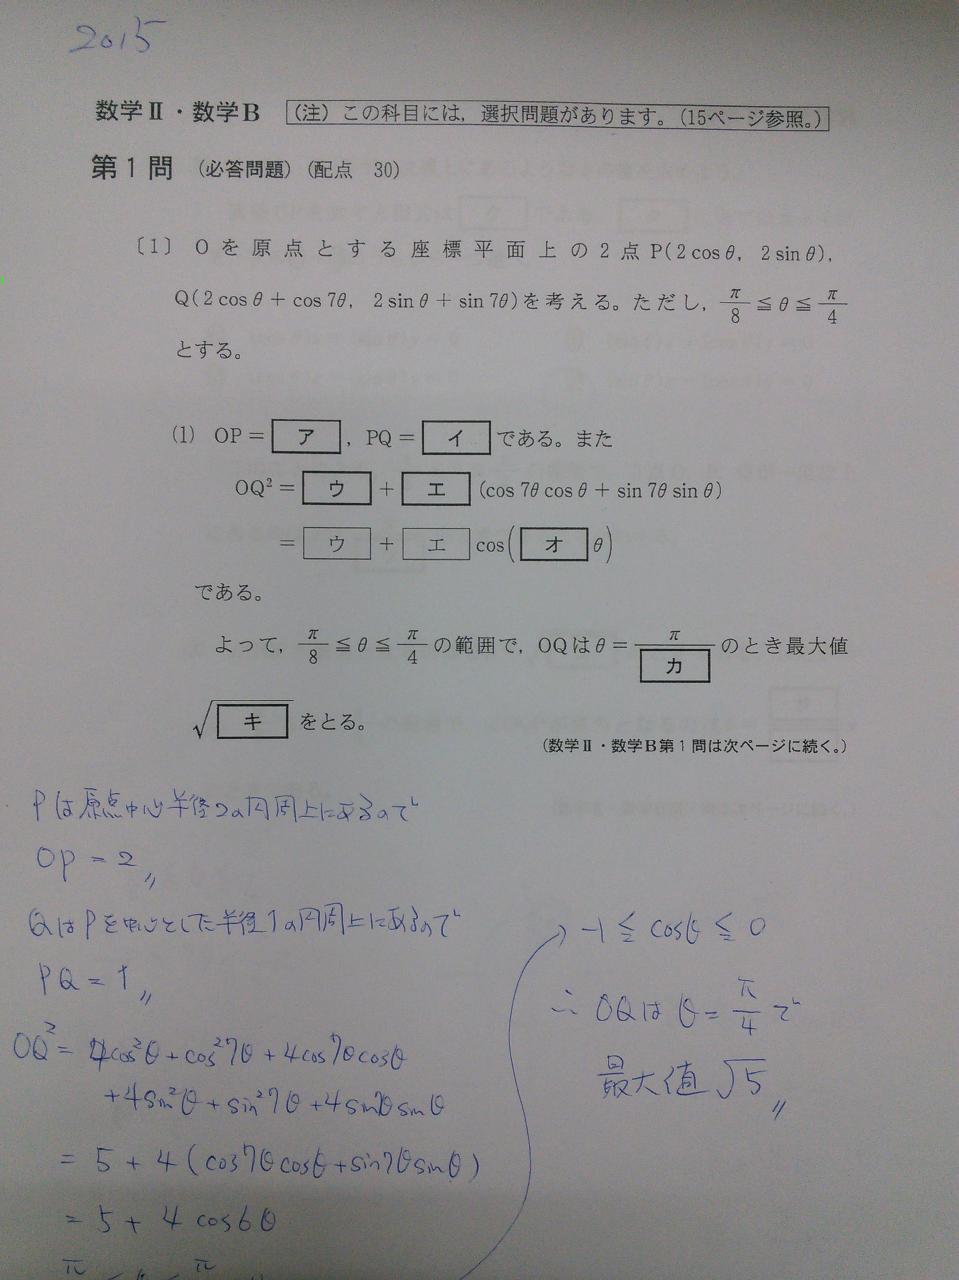 2015
数学Ⅱ・数学B (注) この科目には,選択問題があります。(15ページ参照。)
第1問 (必答問題) (配点 30)
〔1〕 Oを原点とする座標平面上の2点P(2cosθ, 2sinθ),
Q(2cosθ+cos7θ, 2sinθ+sin7θ)を考える。ただし, π/8≦θ≦π/4
とする。
(1) OP=ア, PQ=イである。また
OQ²=ウ+エ(cos7θcosθ+sin7θsinθ)
=ウ+エcos(オθ)
である。
よって, π/8≦θ≦π/4の範囲で, OQはθ=π/カのとき最大値
√キをとる。
(数学Ⅱ・数学B第1問は次ページに続く。)
Pは原点中心半径2の円周上にあるので
OP=2
Qは Pを中心とした半径1の円周上にあるので
PQ=1
OQ²=4cos²θ+cos²7θ+4cos7θcosθ
+4sin²θ+sin²7θ+4sin7θsinθ
=5+4(cos7θcosθ+sin7θsinθ)
=5+4cos6θ
-1≦cosθ≦0
∴OQはθ=π/4で
最大値√5